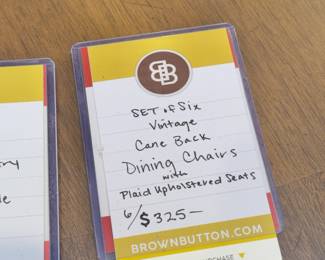 BB
SET of Six
Vintage
Cane Back
Dining Chairs
with
Plaid Upholstered Seats
6/$325—
BROWNBUTTON.COM